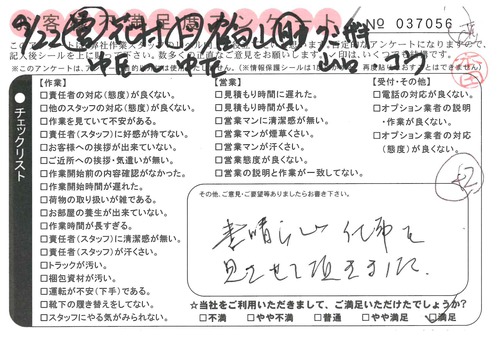 お客様不満足度アンケート
No 037056
【作業】
□責任者の対応(態度)が良くない。
□他のスタッフの対応(態度)が良くない。
□作業を見ていて不安がある。
□責任者(スタッフ)に好感が持てない。
□お客様への挨拶が出来ていない。
□ご近所への挨拶・気遣いが無い。
□作業開始前の内容確認がなかった。
□作業開始時間が遅れた。
□荷物の取り扱いが雑である。
□お部屋の養生が出来ていない。
□作業時間が長すぎる。
□責任者(スタッフ)に清潔感が無い。
□責任者(スタッフ)が汗くさい。
□トラックが汚い。
□梱包資材が汚い。
□運転が不安(下手)である。
□靴下の履き替えをしてない。
□スタッフにやる気がみられない。
【営業】
□見積もり時間に遅れた。
□見積もり時間が長い。
□営業マンに清潔感が無い。
□営業マンが煙草くさい。
□営業マンが汗くさい。
□営業態度が良くない。
□営業の説明と作業が一致してない。
【受付・その他】
□電話の対応が良くない。
□オプション業者の説明
・作業が良くない。
□オプション業者の対応
(態度)が良くない。
チェックリスト
その他、ご意見・ご要望等ありましたらお書き下さい。
素晴らしい仕事を
見させて頂きました。
☆当社をご利用いただきまして、ご満足いただけたでしょうか?
□不満 □やや不満 □普通 □やや満足 □満足